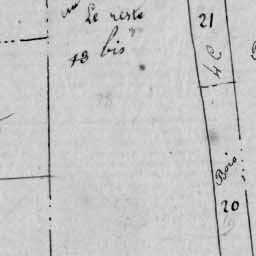 Le reste
48 bis
21
4 C
Bois
20